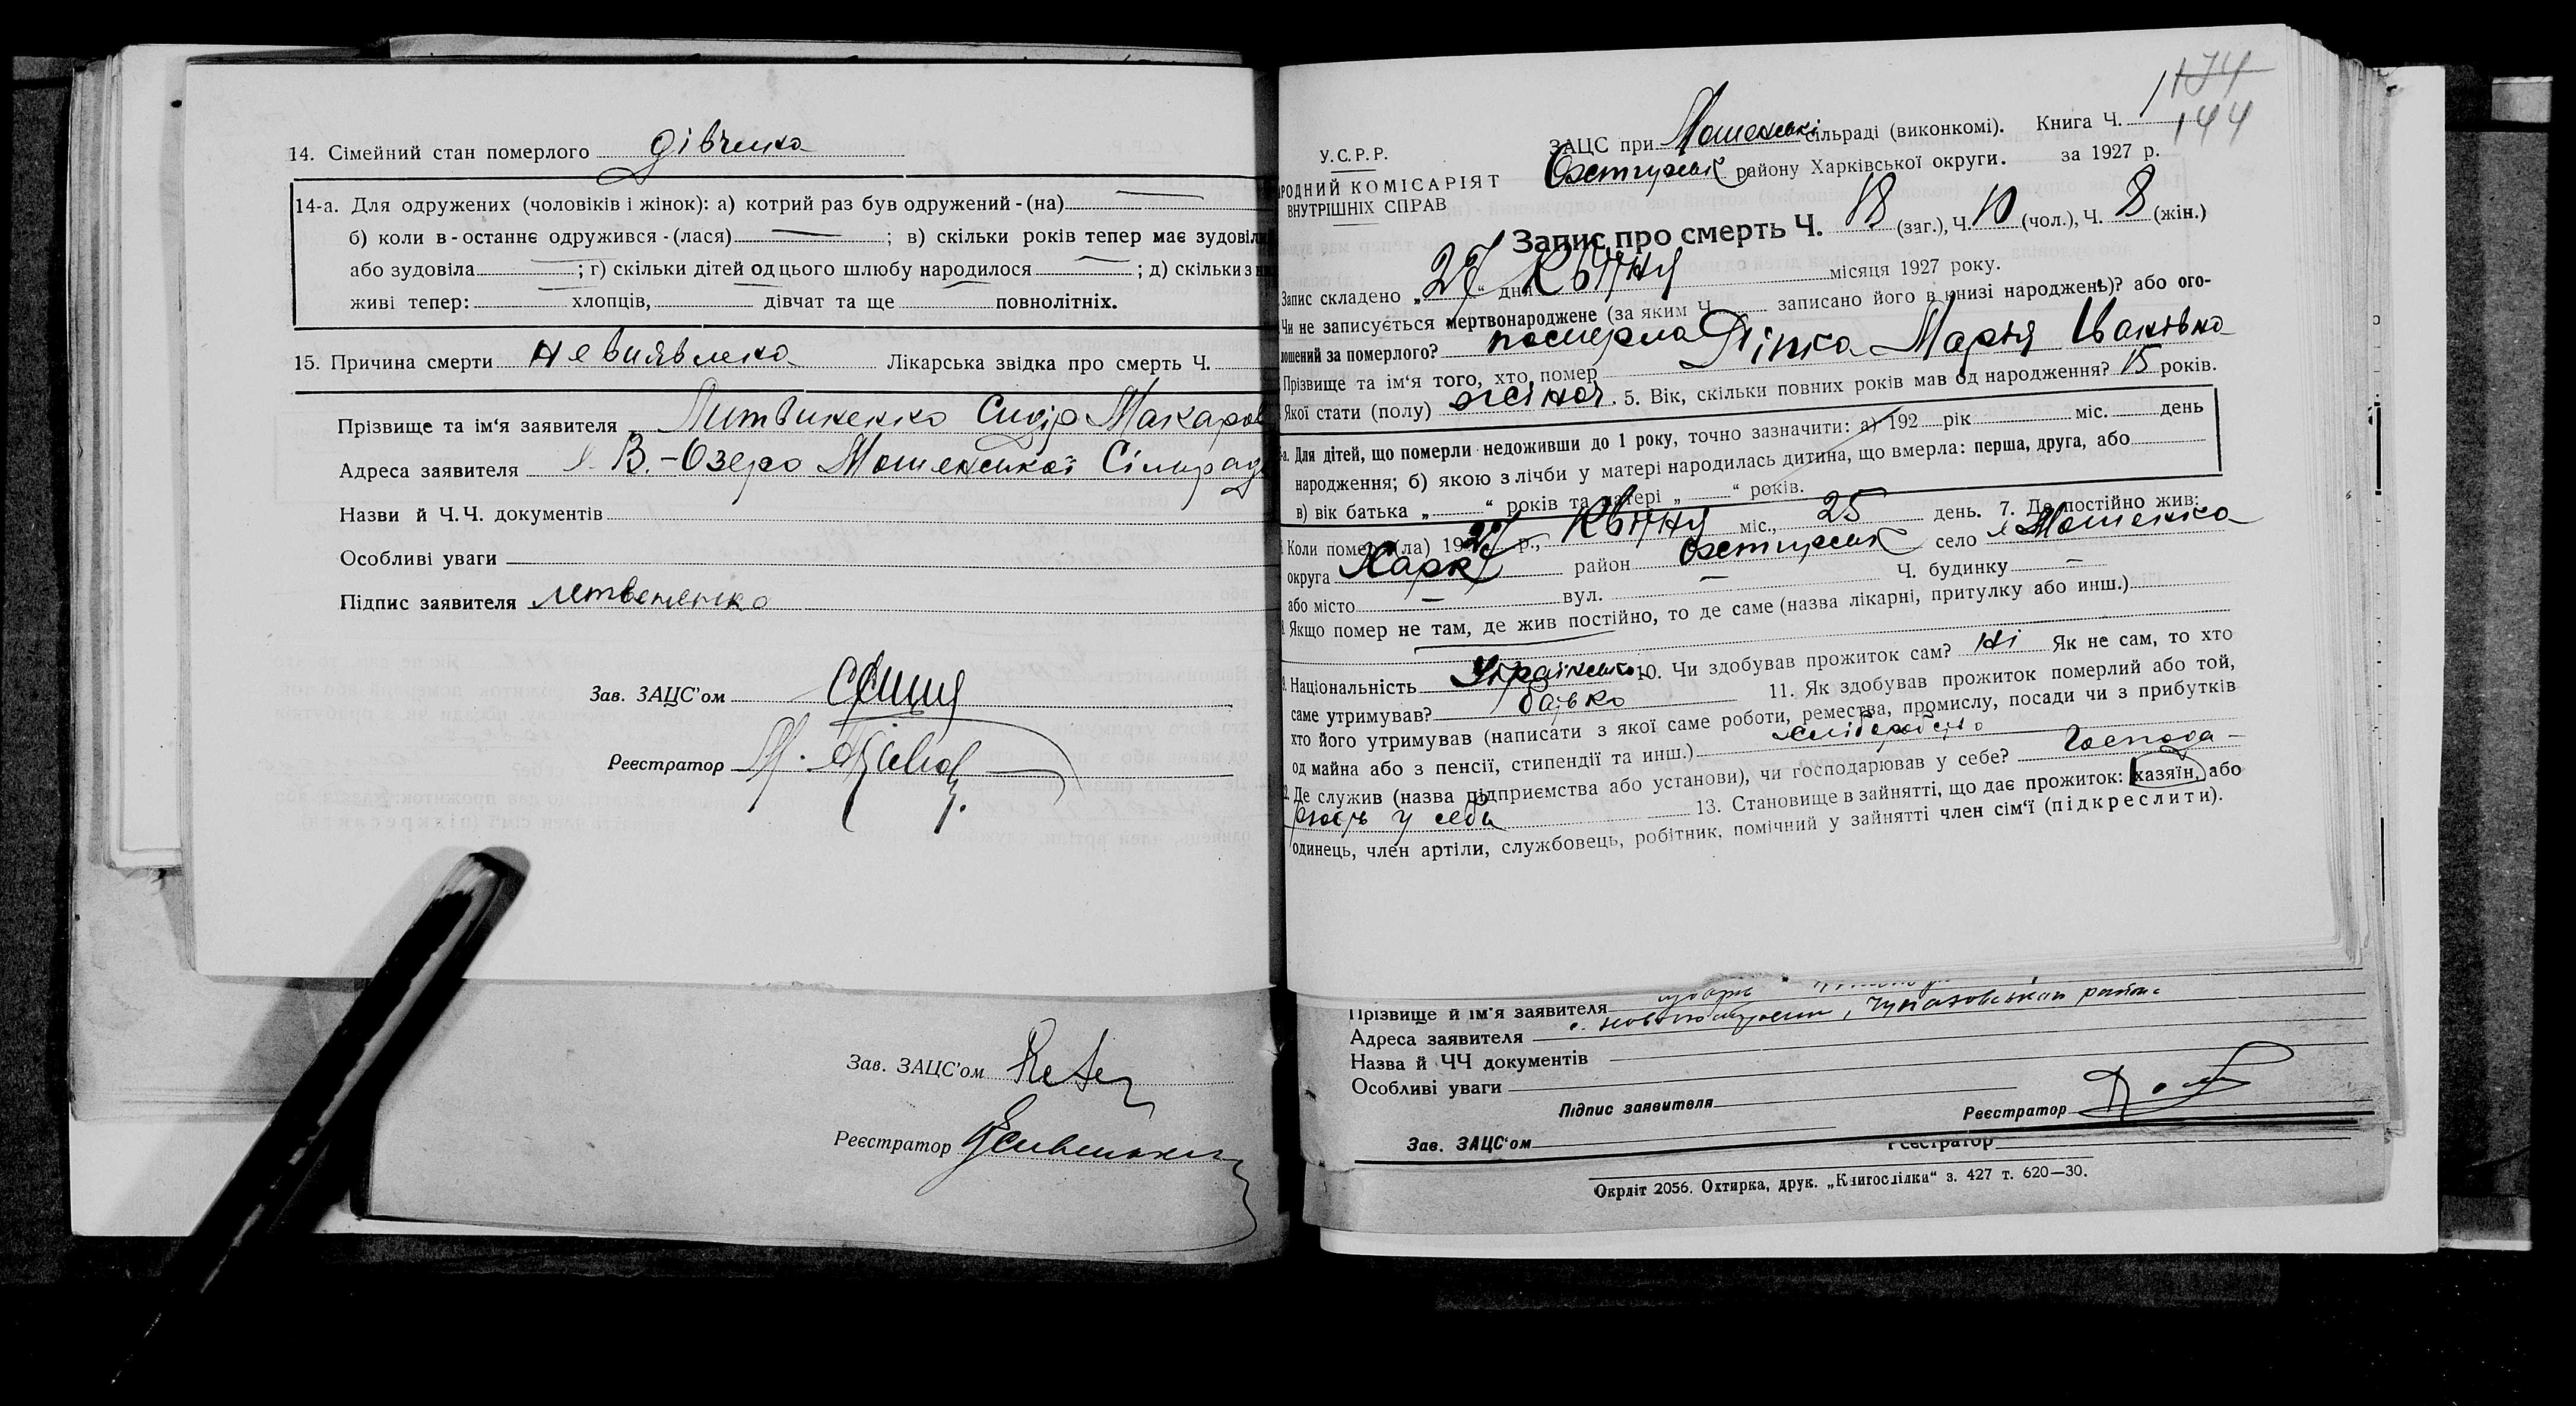 14. Сімейний стан померлого дівчина
14-а. Для одружених (чоловіків і жінок): а) котрий раз був одружений-(на)
б) коли в-останнє одружився-(лася) ; в) скільки років тепер має зудовіл
або зудовіла ; г) скільки дітей од цього шлюбу народилося ; д) скільки з
живі тепер: хлопців, дівчат та ще повнолітніх.
15. Причина смерти не виявлена Лікарська звідка про смерть Ч.
Прізвище та ім'я заявителя Литвиненко Сидір Макаров
Адреса заявителя В.-Озеро Мошенської Сільрад
Назви й Ч.Ч. документів
Особливі уваги
Підпис заявителя
Зав. ЗАЦС'ом
Реєстратор
Зав. ЗАЦС'ом
Реєстратор
174
144
У.С.Р.Р.
РОДНИЙ КОМІСАРІЯТ
ВНУТРІШНІХ СПРАВ
ЗАЦС при Мошенскі сільраді (виконкомі). Книга Ч. 1
Охтирськ району Харківської округи. за 1927 р.
Запис про смерть Ч. 18 (заг.), Ч. 10 (чол.), Ч. 8 (жін.)
Запис складено „27“ дня Квітня місяця 1927 року.
Чи не записується мертвонароджене (за яким Ч. записано його в книзі народжень)? або ого-
лошений за померлого? померла
Прізвище та ім'я того, хто помер Марія Іванівна
Якої стати (полу) жіноч. 5. Вік, скільки повних років мав од народження? 15 років.
-а. Для дітей, що померли недоживши до 1 року, точно зазначити: а) 192 рік міс. день
народження; б) якою з лічби у матері народилась дитина, що вмерла: перша, друга, або
в) вік батька „ “ років та матері „ “ років.
Коли помер (ла) 1927 р., Квітня міс., 25 день. 7. Де постійно жив:
округа Харк район Охтирськ село Мошенка
або місто — вул. — Ч. будинку —
Якщо помер не там, де жив постійно, то де саме (назва лікарні, притулку або инш.)
Національність Українська 10. Чи здобував прожиток сам? ні Як не сам, то хто
саме утримував? батько 11. Як здобував прожиток померлий або той,
хто його утримував (написати з якої саме роботи, ремества, промислу, посади чи з прибутків
од майна або з пенсії, стипендії та инш.) хліборобство
Де служив (назва підприємства або установи), чи господарював у себе? Господа-
рють у себе 13. Становище в зайнятті, що дає прожиток: хазяїн, або
одинець, член артіли, службовець, робітник, помічний у зайнятті член сім'ї (підкреслити).
Прізвище й ім'я заявителя
Адреса заявителя
Назва й ЧЧ документів
Особливі уваги
Підпис заявителя Реєстратор
Зав. ЗАЦС'ом Реєстратор
Окрліт 2056. Охтирка, друк. „Книгоспілка“ з. 427 т. 620—30.